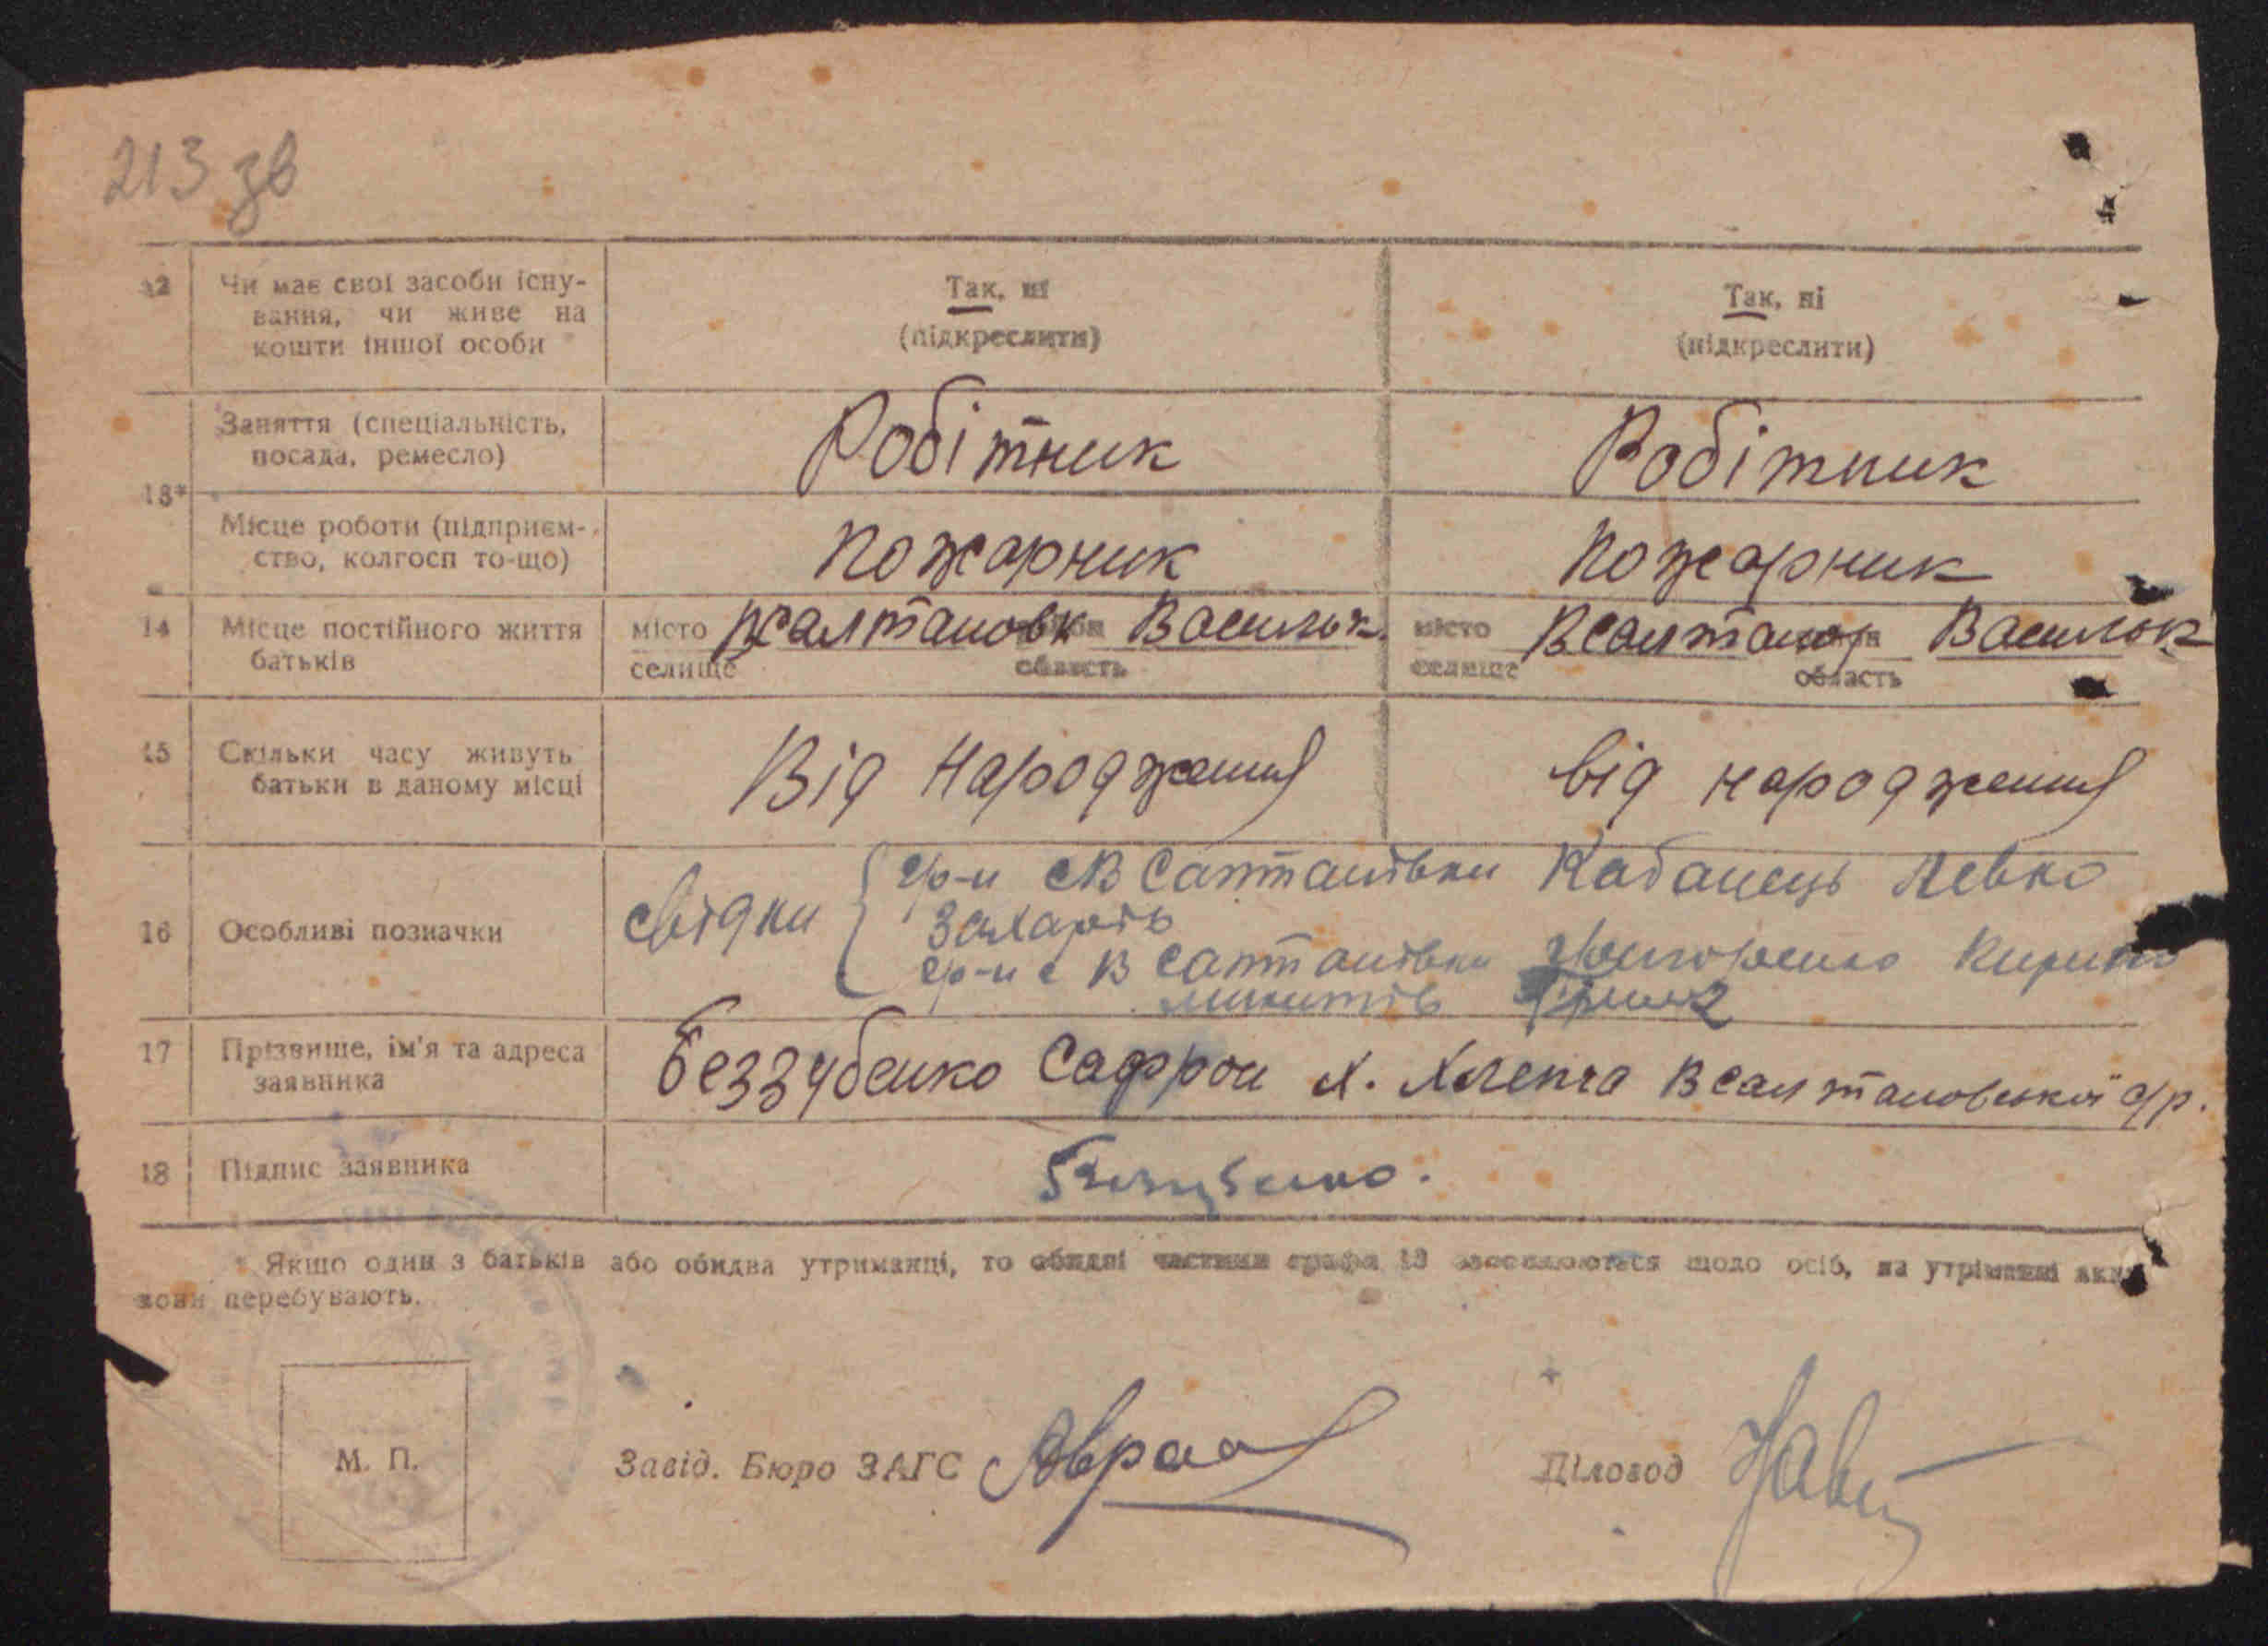 213 зв
12 Чи має свої засоби існу- Так, ні Так, ні
вання, чи живе на (підкреслити) (підкреслити)
кошти іншої особи
Заняття (спеціальність, Робітник Робітник
посада, ремесло)
13*
Місце роботи (підприєм- Пожарник Пожарник
ство, колгосп то-що)
14 Місце постійного життя місто Всалтановк Васильк. місто Всалтанов Васильк
батьків селище область селище область
15 Скільки часу живуть Від народження від народження
батьки в даному місці
свідки гр-н с В Салтанівки Кабанець Левко
Захарів
16 Особливі позначки гр-н с В Салтанівки Григоренко Кирило
Микитів
17 Прізвище, ім'я та адреса Беззубенко Сафрон х. Хлепча Всалтановської с/р.
заявника
18 Підпис заявника Беззубенко.
* Якщо один з батьків або обидва утриманці, то обидві частини графи 13 заповнюються щодо осіб, на утриманні яких
вони перебувають.
М. П. Завід. Бюро ЗАГС Діловод